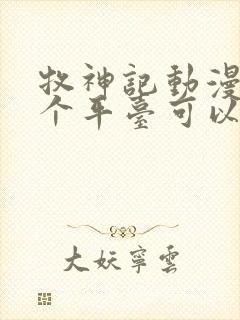 牧神記動漫
个平臺可以
大妖寧雲